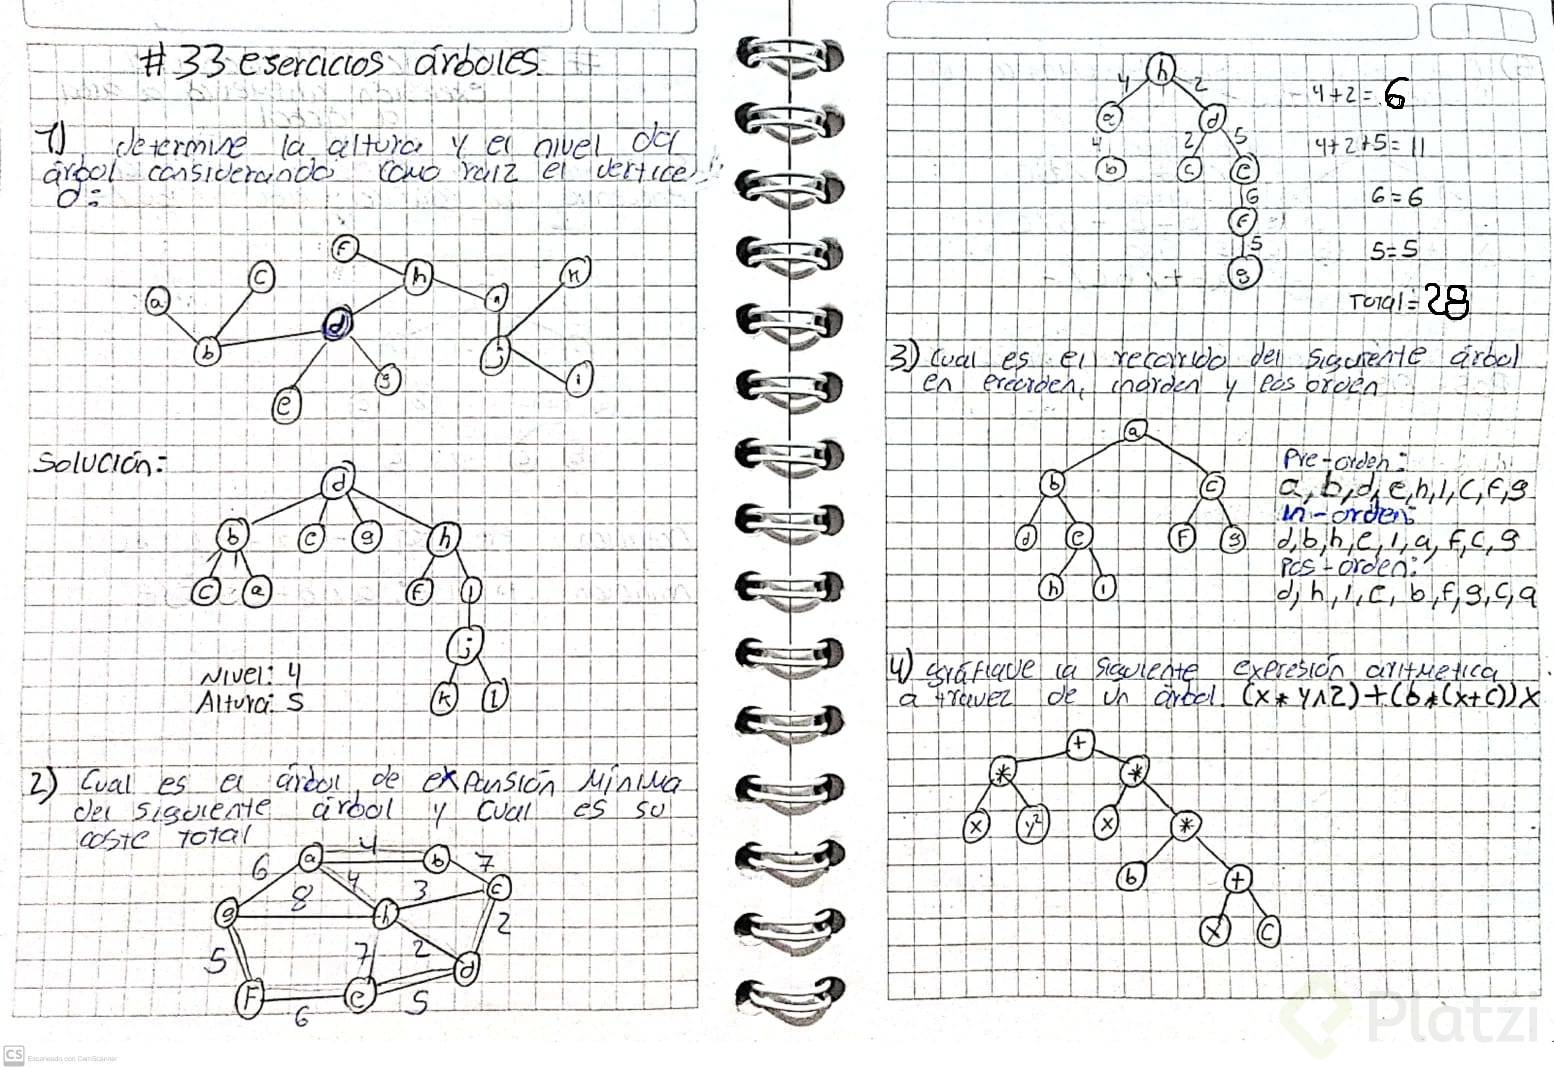 #33 esercicios árboles.
1) determine la altura y el nivel del
árbol considerando como raiz el vertice
d:
f
h
k
c
a
i
d
b
j
g
i
e
Solución:
d
b
c
g
h
c
a
f
i
j
k
l
Nivel: 4
Altura: 5
2) Cual es el árbol de expansión Minima
del siguiente árbol y cual es su
coste total
a
4
b
6
7
4
3
c
g
8
h
2
5
7
2
d
f
6
e
5
h
4
2
a
d
4
2
5
b
c
e
6
f
5
g
4+2=6
4+2+5=11
6=6
5=5
Total=28
3) Cual es el recorrido del siguiente árbol
en preorden, inorden y posorden
a
b
c
d
e
f
g
h
i
Pre-orden:
a,b,d,e,h,i,c,f,g
In-orden:
d,b,h,e,i,a,f,c,g
Pos-orden:
d,h,i,e,b,f,g,c,a
4) gráfique la siguiente expresión aritmetica
a travez de un árbol. (x*y^2)+(b*(x+c))x
+
*
*
x
y²
x
*
b
+
x
c
Platzi
CS Escaneado con CamScanner